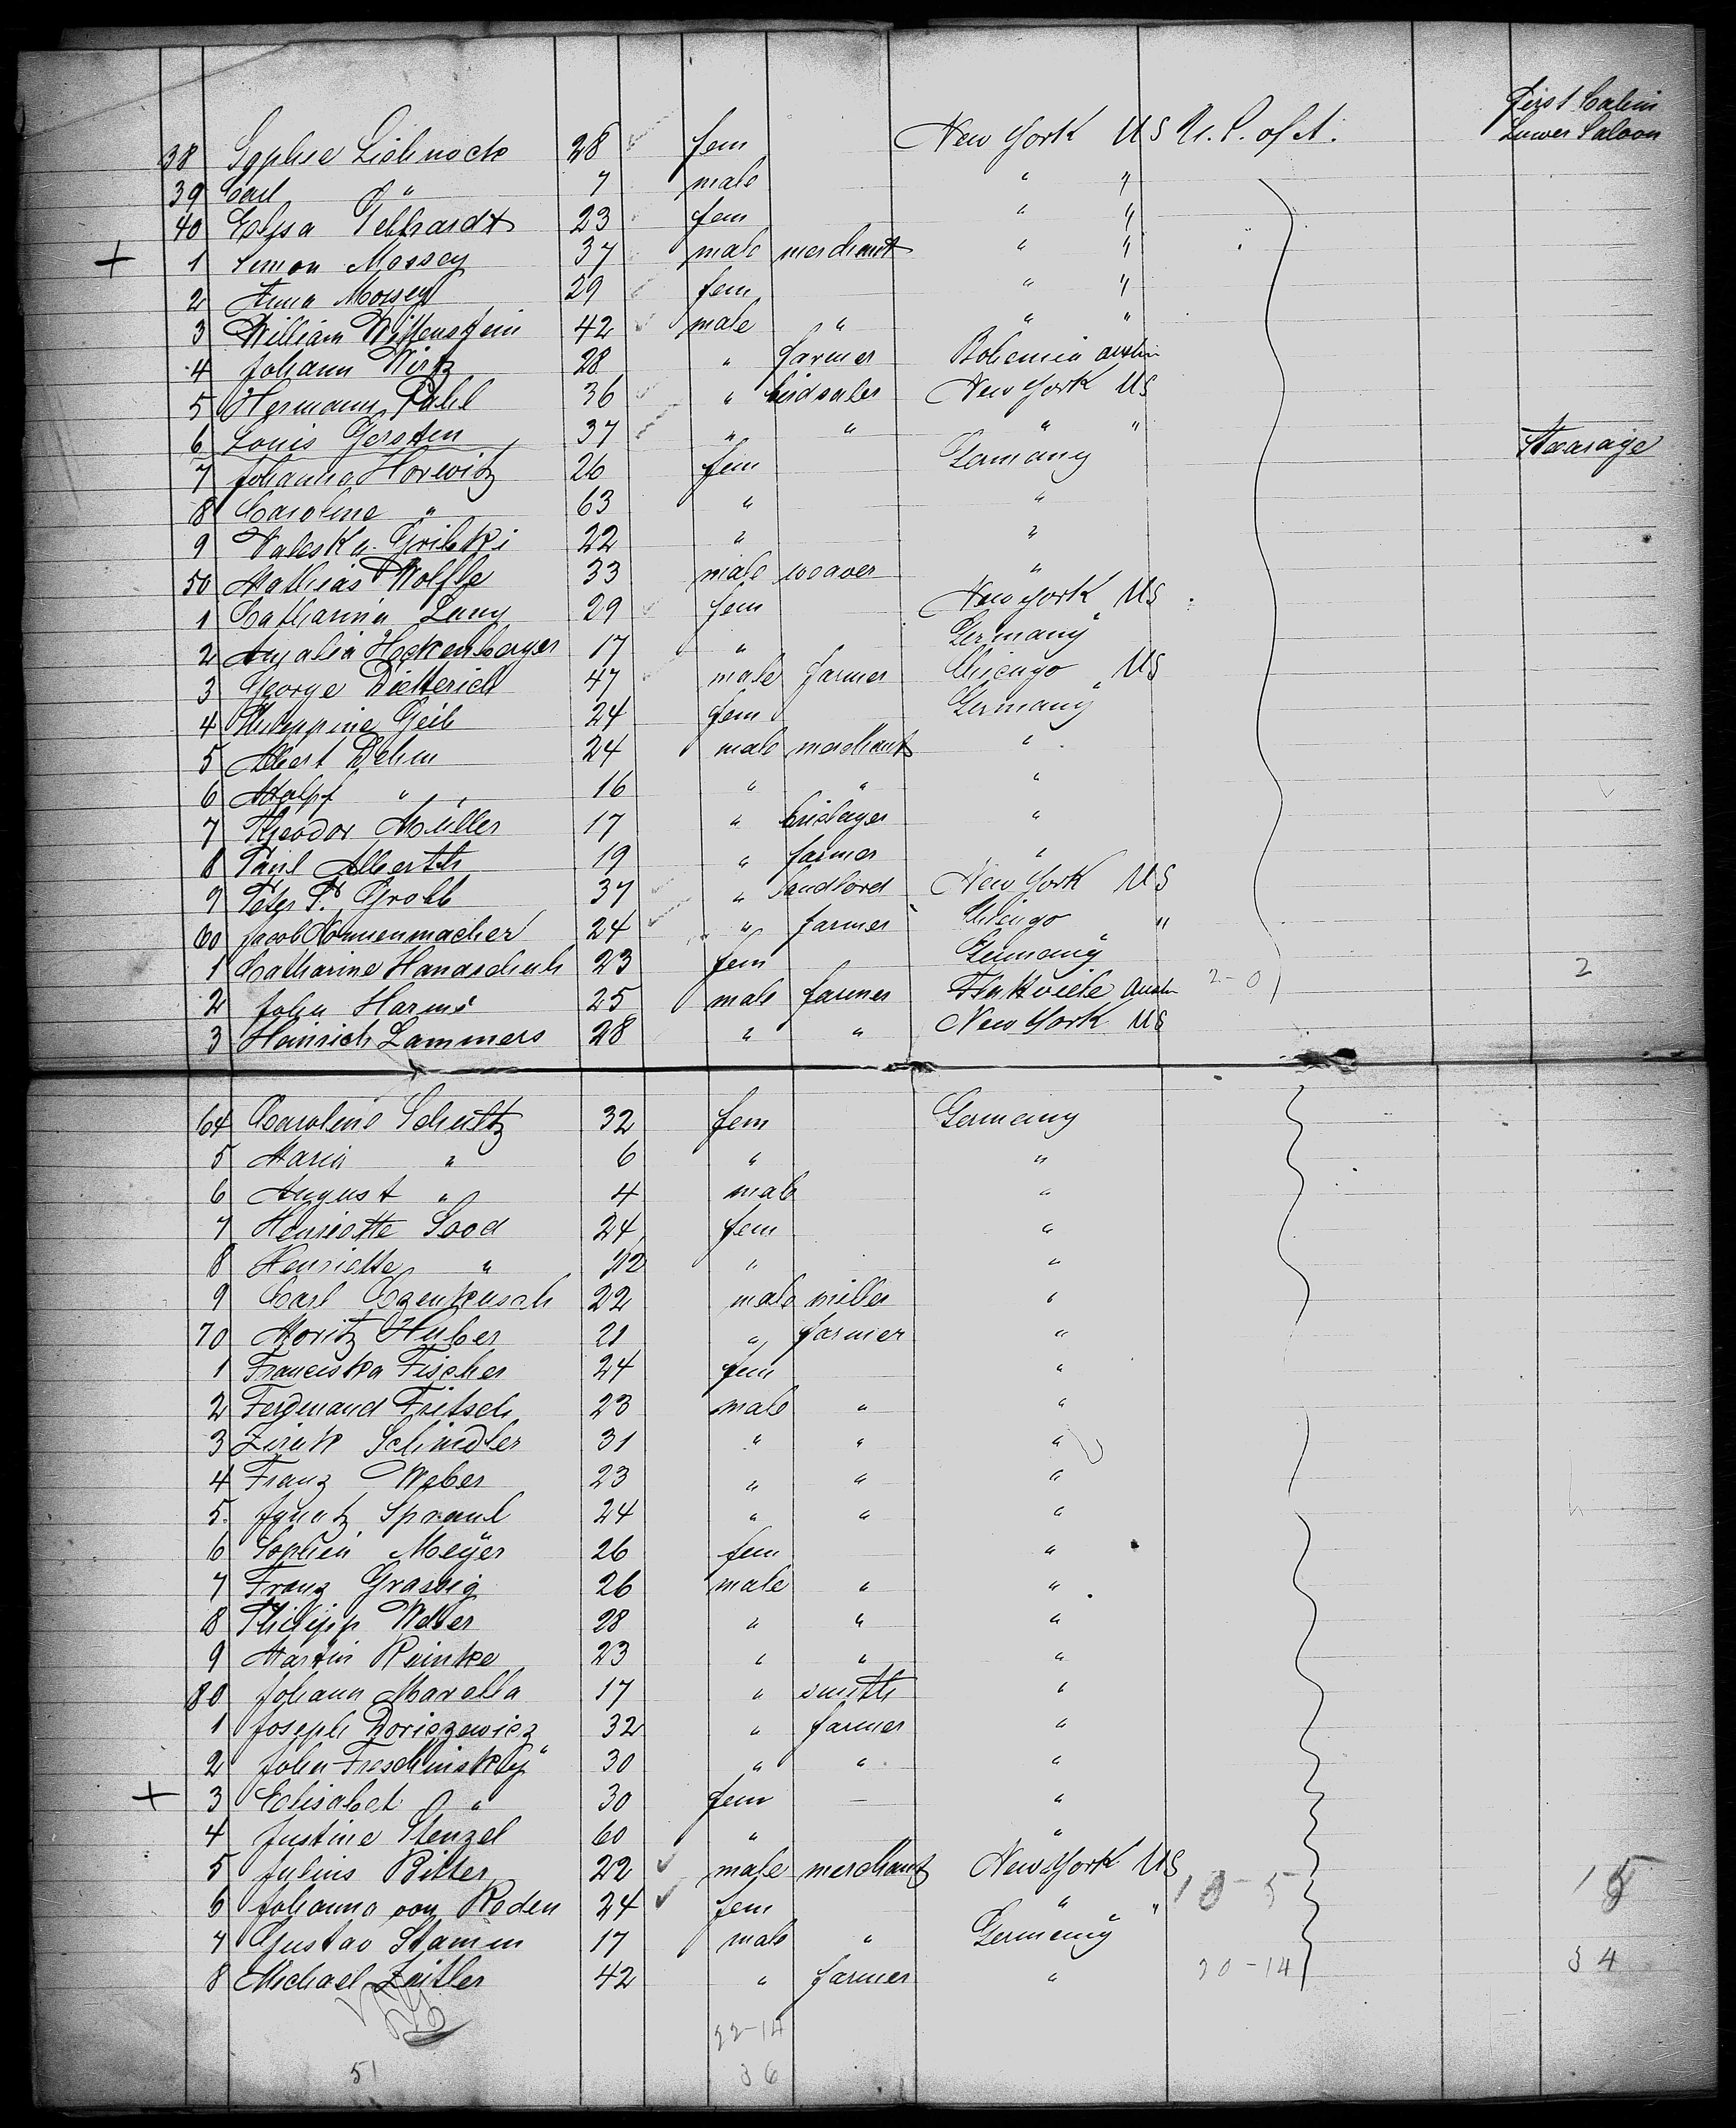 First Cabin
38 Sophie Lichnock 28 fem New York US U.S. of A. Lower Saloon
39 Carl " 7 male " "
40 Elysa Gebhardt 23 fem " "
+ 1 Simon Mossey 37 male merchant " "
2 Anna Mossey 29 fem " "
3 William Wittenstein 42 male " " "
4 Johann Wirtz 28 " farmer Bohemia Austria
5 Hermann Pahl 36 " New York US
6 Louis Gersten 37 " " " "
7 Johanna Horwitz 26 fem Germany Stearage
8 Caroline " 63 " "
9 Valeska Gribki 22 " "
50 Mathias Wolffe 33 male weaver "
1 Catharina Lang 29 fem New York US
2 Amalia Hockenberger 17 " Germany
3 George Dietterich 47 male farmer Chicago US
4 Philippine Geib 24 fem Germany
5 Albert Dehm 24 male merchant "
6 Adolpf " 16 " " "
7 Theodor Müller 17 " "
8 Paul Alberth 19 " farmer "
9 Peter P. Grobb 37 " landlord New York US
60 Jacob Nonnenmacher 24 " farmer Chicago "
1 Catharine Handschuh 23 fem Germany
2 John Harms 25 male farmer Austria 2-0 2
3 Heinrich Lammers 28 " " New York US
64 Caroline Schultz 32 fem Germany
5 Maria " 6 " "
6 August " 4 male "
7 Henriette Sood 24 fem "
8 Henriette " "
9 Carl Czenkusch 22 male miller "
70 Moritz Huber 21 " farmer "
1 Franciska Fischer 24 fem "
2 Ferdinand Fritsch 23 male " "
3 Schindler 31 " " "
4 Franz Weber 23 " " "
5 Ignatz Spraul 24 " " "
6 Sophia Meÿer 26 fem "
7 Franz Grassig 26 male " "
8 Philipp Weber 28 " " "
9 Martin Reinke 23 " " "
80 Johann Marella 17 " smith "
1 Joseph Boriszewicz 32 " farmer "
2 John Freschinsky 30 " " "
+ 3 Elisabet " 30 fem — "
4 Justine Stenzel 60 " "
5 Julius Ritter 22 male merchant New York US
6 Johanna von Roden 24 fem " " 10-5 15
7 Gustav Stamm 17 male " Germany
8 Michael Zeitler 42 " farmer " 20-14 34
22-14
51 36